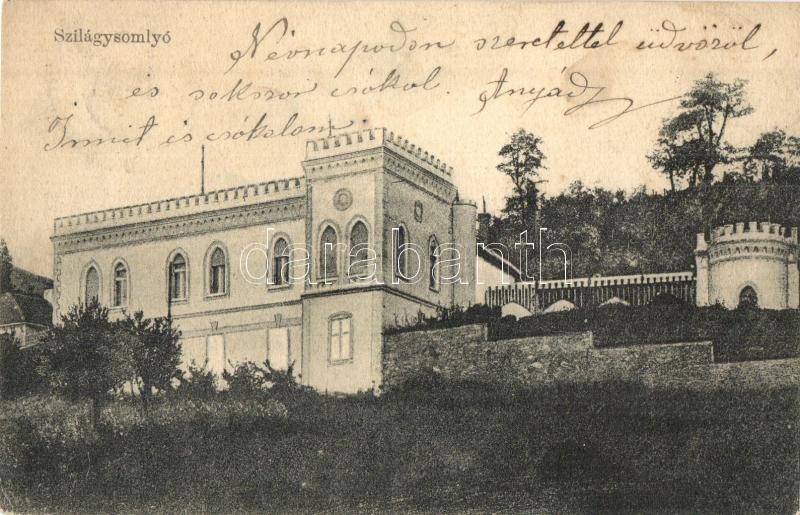 Szilágysomlyó
Névnapodon szeretettel üdvözöl,
és sokszor csókol. Anyád
Irmit is csókolom
darabanth